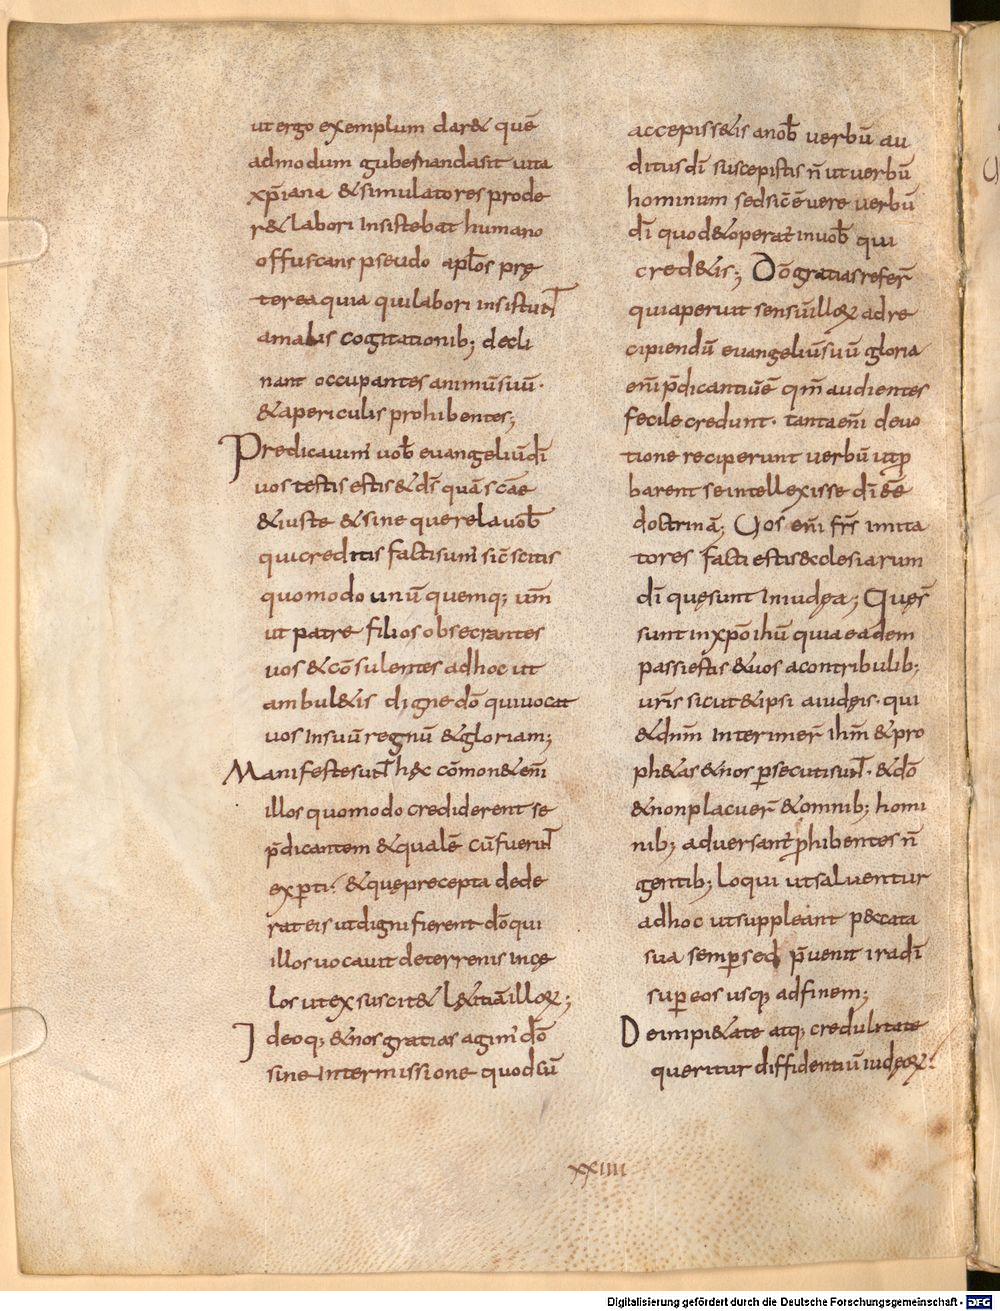 ut ergo exemplum dar& quē
admodum gubernanda sit uita
xp̄iana &simulatores prode
r& labori insistebat humano
offuscans pseudo apl̄os prę
terea quia qui labori insistunt
amalis cogitationib; decli
nant occupantes animū suū·
&apericulis prohibentes;
Predicauim' uob̄ euangeliū dī
uos testis estis &ds̄ quā scāe
&iuste &sine querela uob̄
qui creditis facti sum' sic̄ scitis
quomodo unū quemq; ur̄m
ut patre filios obsecrantes
uos &cōsulentes adhoc ut
ambul&is digne dō qui uocat
uos insuū regnū &gloriam;
Manifeste sunt hęc cōmon& enī
illos quomodo crediderent se
p̄dicantem &qualē cū fuerint
experti; &quę precepta dede
rat eis ut digni fierent dō qui
illos uocauit deterrenis in cę
los ut ex suscit& l&itiā illoꝝ;
Ideoq; &nos gratias agim' dō
sine intermissione quod cū
accepiss&is anob̄ uerbū au
ditus dī suscepistis n̄ ut uerbū
hominum sed sic̄ ē uere uerbū
dī quod &operat̄ inuob̄ qui
cred&is; Dō gratias refer̄
quia peruit sensū illoꝝ ad re
cipiendū euangeliū suū gloria
enī p̄dicantiū ē qm̄ audientes
fecile credunt· tanta enī deuo
tione reciperunt uerbū ut ꝓ
barent se intellexisse dī ēē
doctrinā; Uos enī fr̄s imita
tores facti estis &cclesiarum
dī quę sunt in iudęa; Quęs̄
sunt inxp̄o ihū quia eadem
passi estis &uos acontribulib;
ur̄is sicut &ipsi a iudęis· qui
&dnm̄ interimer̄ ihm̄ &pro
ph&as &nos persecuti sunt· &dō
&non placuer̄ &omnib; homi
nib; aduersant̄ ꝓhibentes n̄
gentib; loqui ut saluentur
adhoc ut suppleant peccata
sua semper sed p̄uenit ira dī
super eos usq; adfinem;
De impi&ate atq; credulitate
queritur diffidentiū iudęoꝝ;
xxiiii
Digitalisierung gefördert durch die Deutsche Forschungsgemeinschaft - DFG